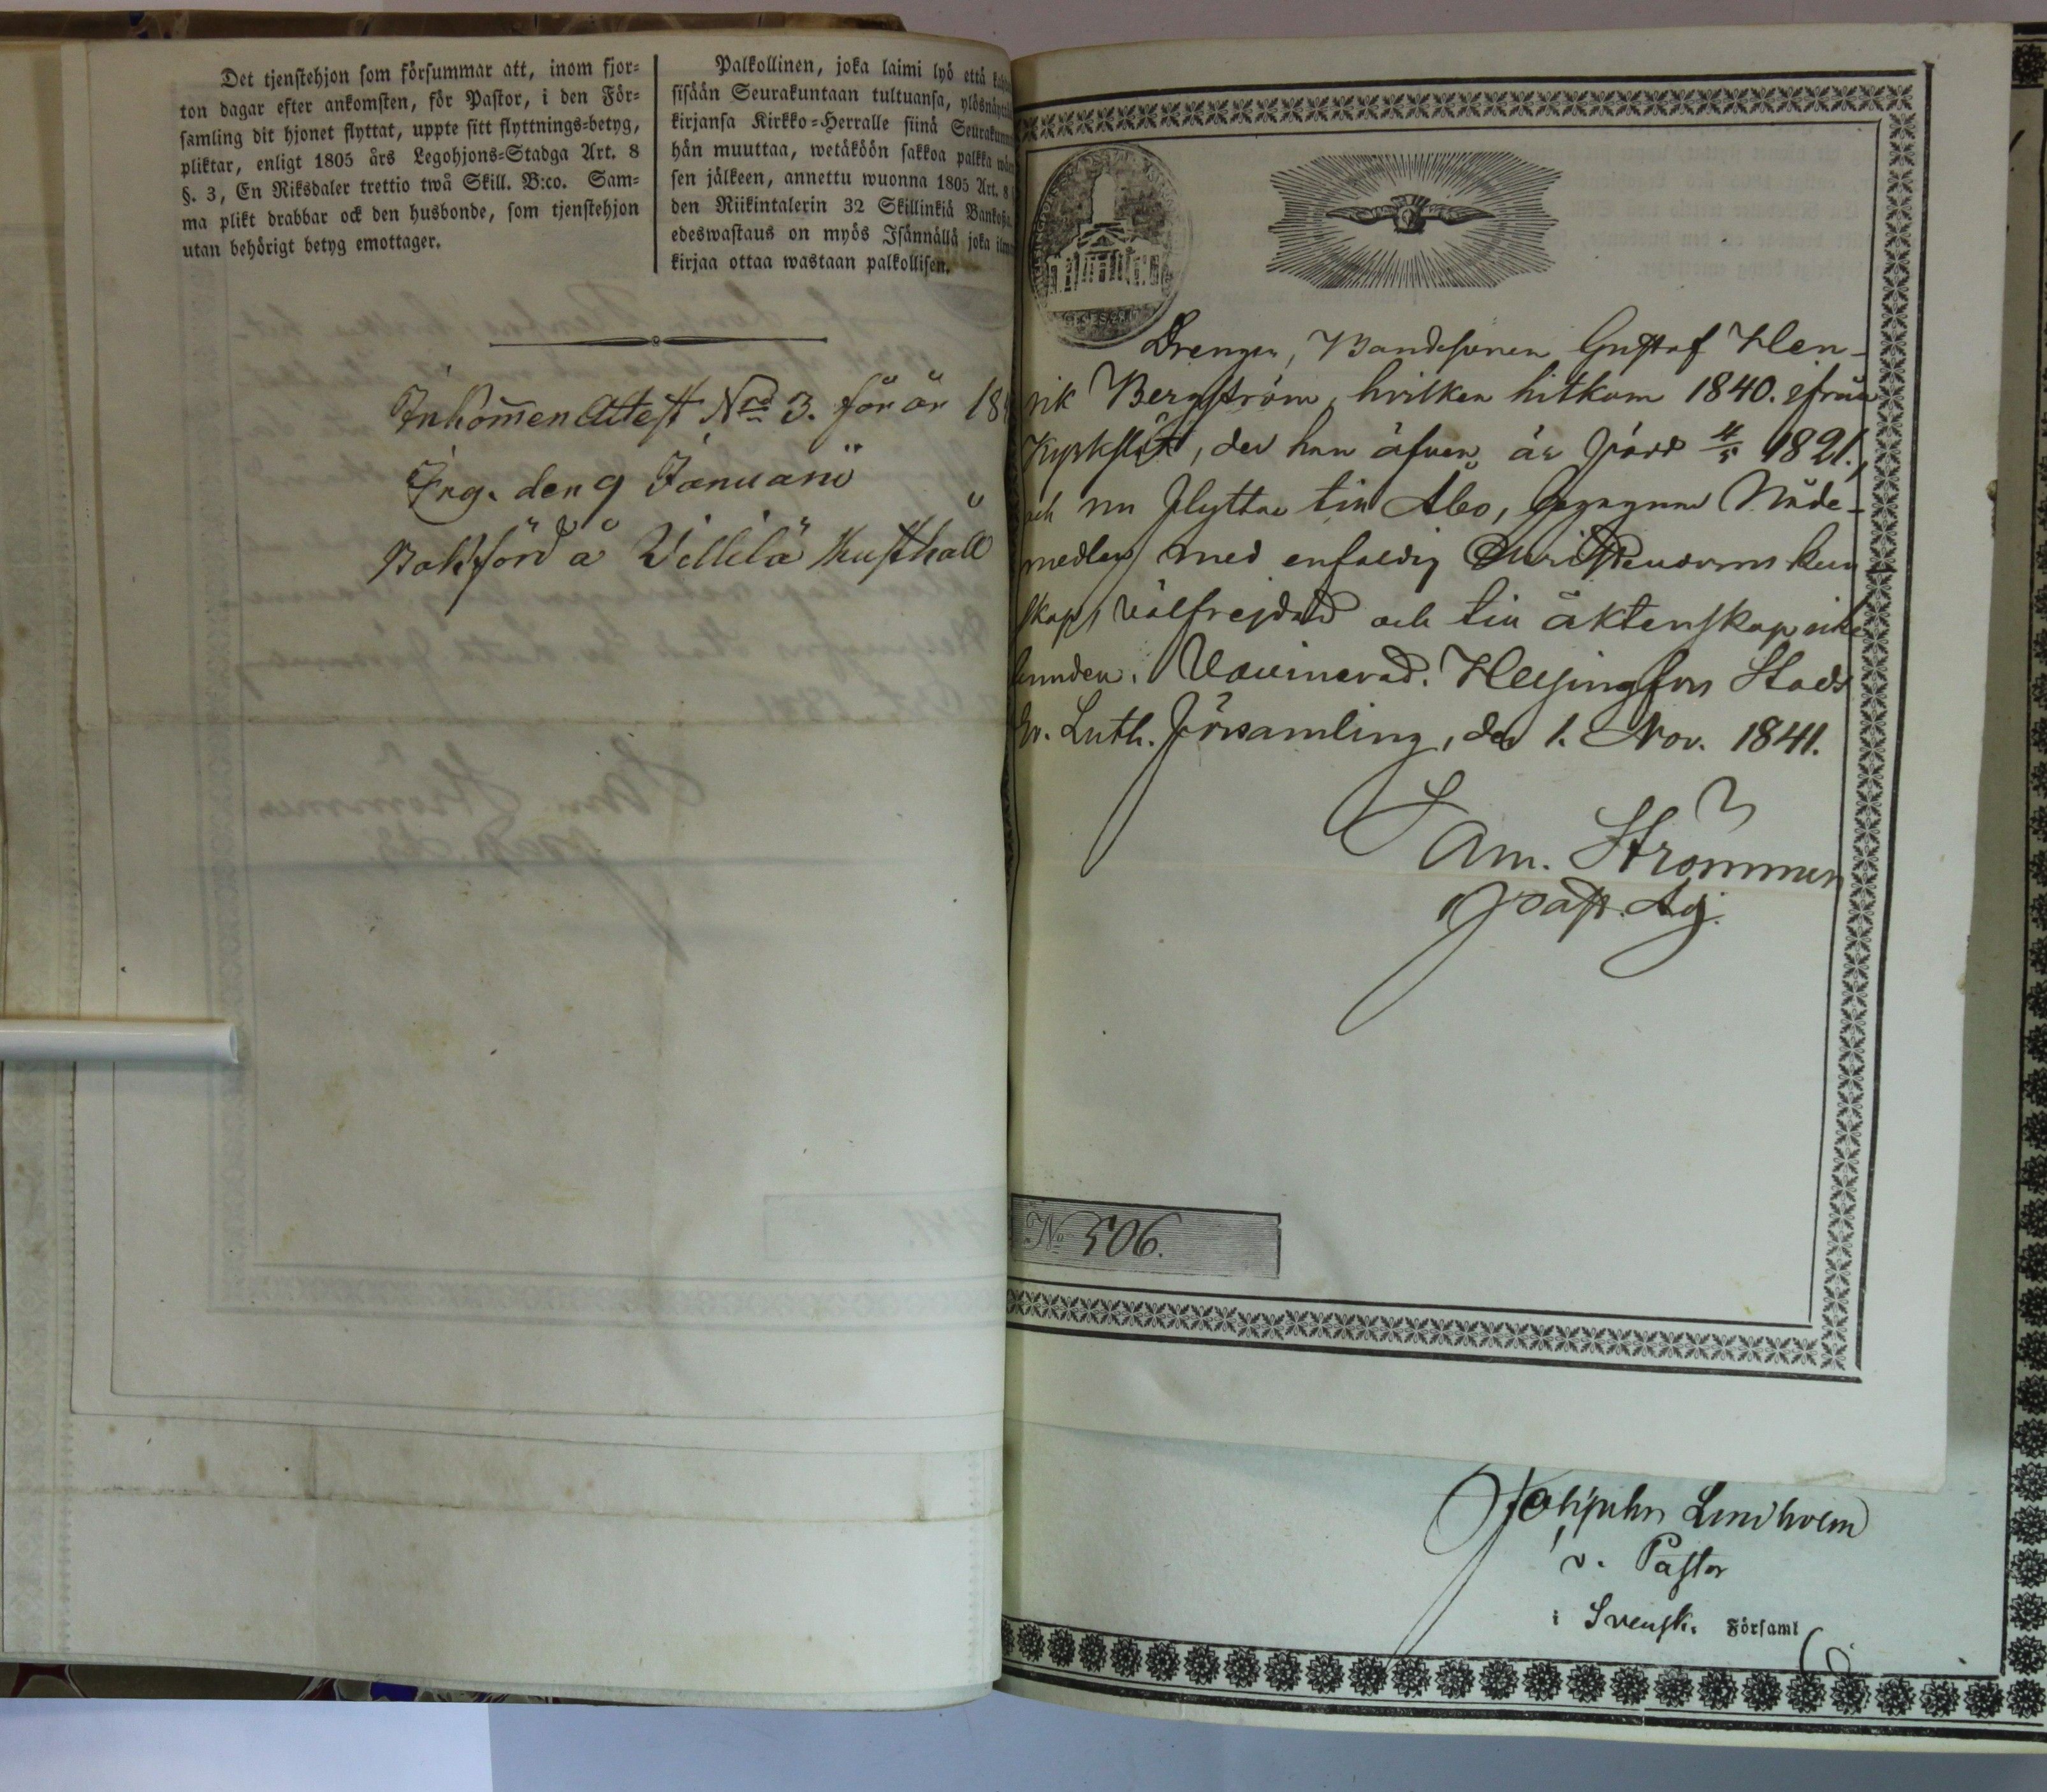 Det tjenstehjon som försummar att, inom fjor-
ton dagar efter ankomsten, för Pastor, i den För-
samling dit hjonet flyttat, uppte sitt flyttnings-betyg,
pliktar, enligt 1805 års Legohjons-Stadga Art. 8
§. 3, En Riksdaler trettio twå Skill. B:co. Sam-
ma plikt drabbar ock den husbonde, som tjenstehjon
utan behörigt betyg emottager.
Palkollinen, joka laimi lyö että
sisään Seurakuntaan tultuansa,
kirjansa Kirkko-Herralle siinä
hän muuttaa, wetäköön sakkoa palkka
sen jälkeen, annettu wuonna 1805 Art. 8
den Riikintalerin 32 Skillinkiä
edeswastaus on myös Isännällä joka
kirjaa ottaa wastaan palkollisen.
Inkommen Attest Nro 3. för år 18
Ing. den 9 Januarii
Bokförd å Villilä Rusthåll
Drengen, Bondesonen Gustaf Hen-
rik Bergström, hvilken hitkom 1840. ifrån
Kyrkslätt, der han äfven är född 4/5 1821.,
och nu flyttar till Åbo, begagnar Nåde-
medlen med enfaldig Christendoms kun
skap, välfrejdad och till äktenskap icke
bunden. Vaccinerad. Helsingfors Stads
Ev. Luth. Församling, den 1. Nov. 1841.
Sam. Strömmer
Past. Adj.
No 506.
Lindholm
v. Pastor
i Svensk. Församl